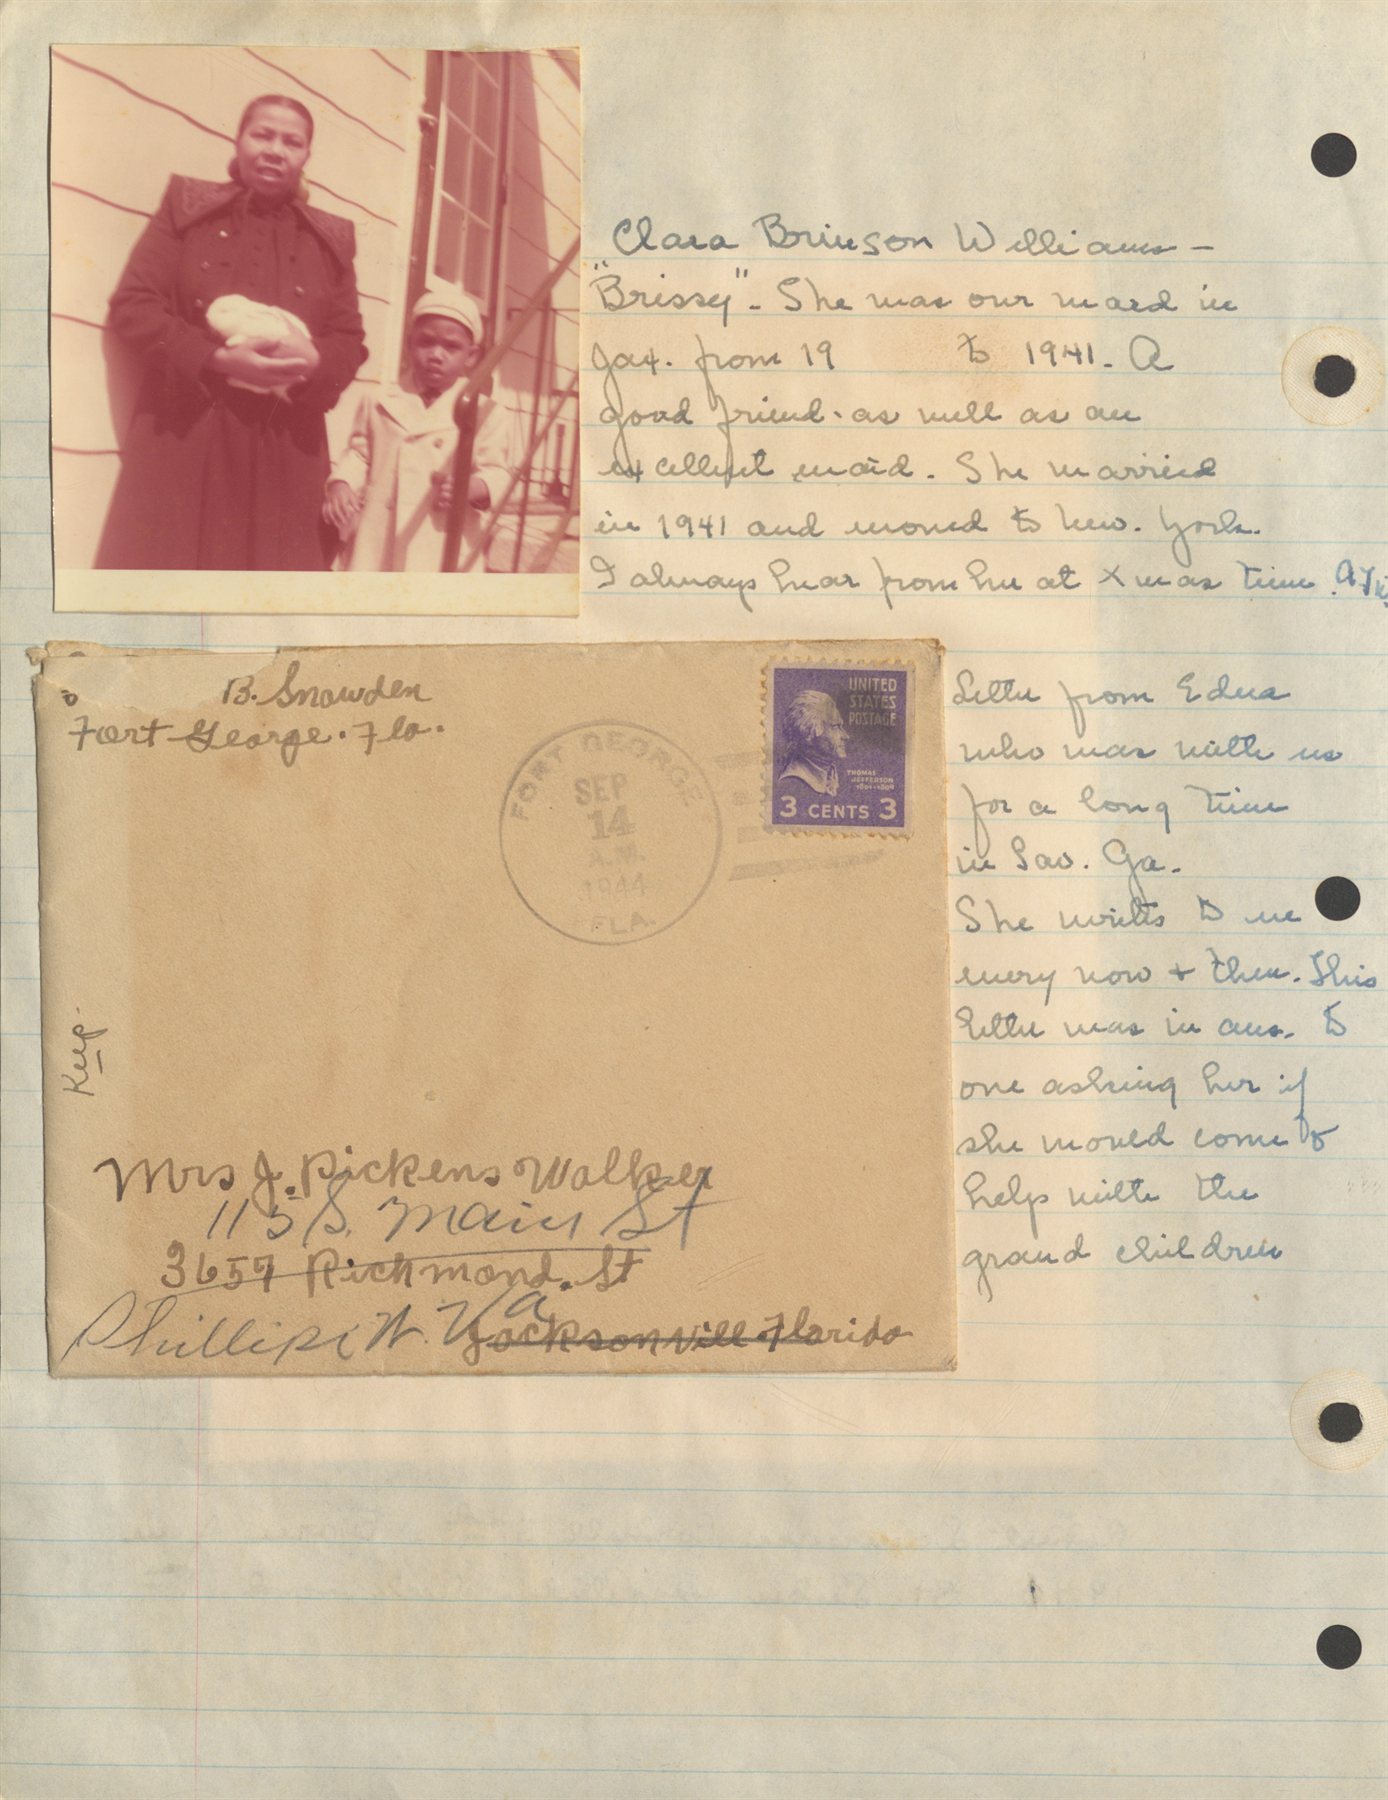 Clara Brinson Williams -
"Brissy" - She was our maid in
Jax. from 19 to 1941. A
good friend - as well as an
excellent maid. She married
in 1941 and moved to New. York.
I always hear from her at Xmas time.
B. Snowden
Fort George. Fla.
FORT GEORGE
SEP
14
A.M.
1944
FLA.
UNITED
STATES
POSTAGE
THOMAS
JEFFERSON
1801-1809
3 CENTS 3
Keep.
Mrs J. Pickens Walker
115 S. Main St
3657 Richmond. St
Phillipi W. Va
Jacksonvill. Florida
Letter from Edna
who was with us
for a long time
in Sav. Ga.
She writes to me
every now + then. This
letter was in ans. to
one asking her if
she would come to
help with the
grand children